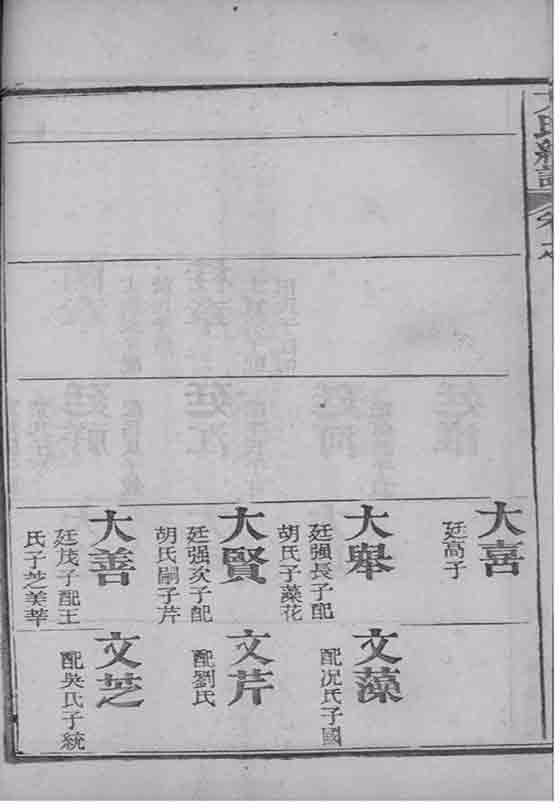 大喜
廷高子
大舉
廷强長子配
胡氏子藻花
大賢
廷强次子配
胡氏嗣子芹
大善
廷茂子配王
氏子芝美莘
文藻
配况氏子國
文芹
配劉氏
文芝
配吳氏子統